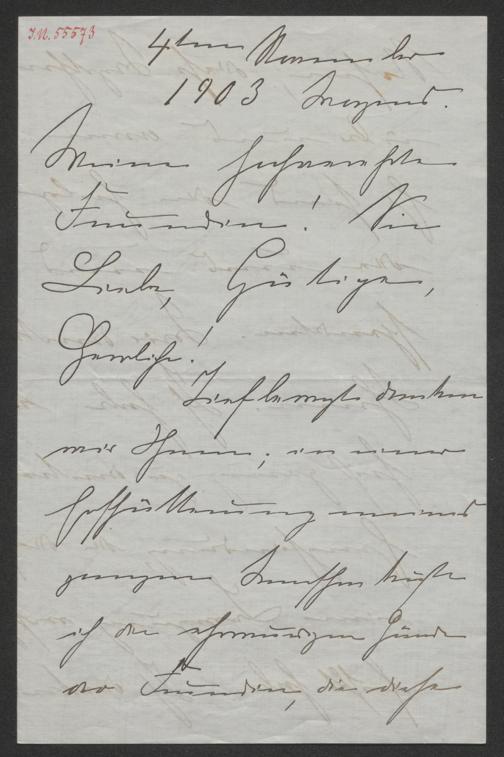 I.N. 55573
4ten November
1903 Morgens.
Meine hochverehrte
Freundin! Sie
Liebe, Gütige,
Herrliche!
Tiefbewegt danken
wir Ihnen, in einer
Erschütterung meines
ganzen Menschen küsse
ich die ehrwürdigen Hände
der Freundin, die diese